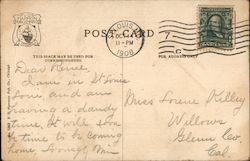 POST CARD
THIS SPACE MAY BE USED FOR
CORRESPONDENCE
FOR ADDRESS ONLY
LOUIS
11-PM
1908
Dear
I am in St Louis
now and am
having a dandy
time. It will soon
be time to be coming
home
Miss Lorene Kelley
Willows
Glenn Co
Cal.